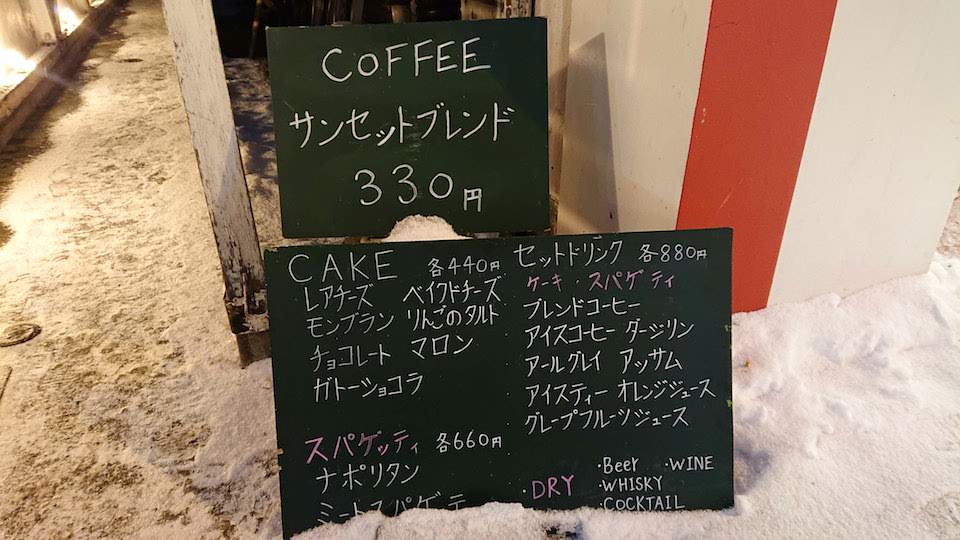 COFFEE
サンセットブレンド
330円
CAKE 各440円
レアチーズ ベイクドチーズ
モンブラン りんごのタルト
チョコレート マロン
ガトーショコラ
スパゲッティ 各660円
ナポリタン
ミートスパゲティ
セットドリンク 各880円
ケーキ・スパゲティ
ブレンドコーヒー
アイスコーヒー ダージリン
アールグレイ アッサム
アイスティー オレンジジュース
グレープフルーツジュース
・DRY
・Beer ・WINE
・WHISKY
・COCKTAIL